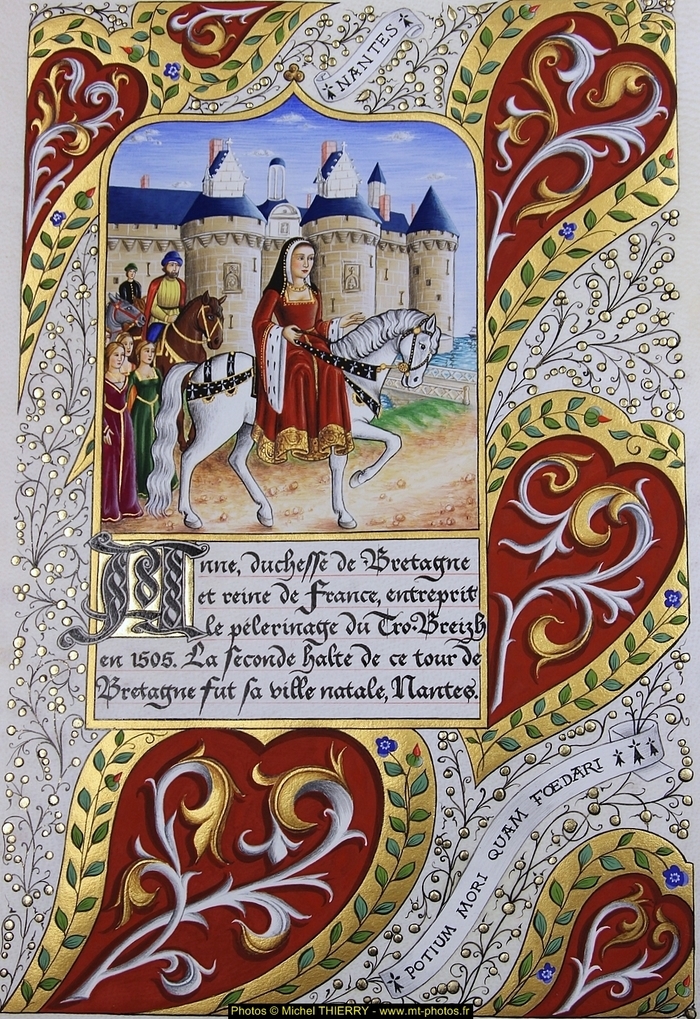 NANTES
Anne, duchesse de Bretagne
et reine de France, entreprit
le pèlerinage du Tro-Breizh
en 1505. La seconde halte de ce tour de
Bretagne fut sa ville natale, Nantes.
POTIUM MORI QUAM FŒDARI
Photos © Michel THIERRY - www.mt-photos.fr